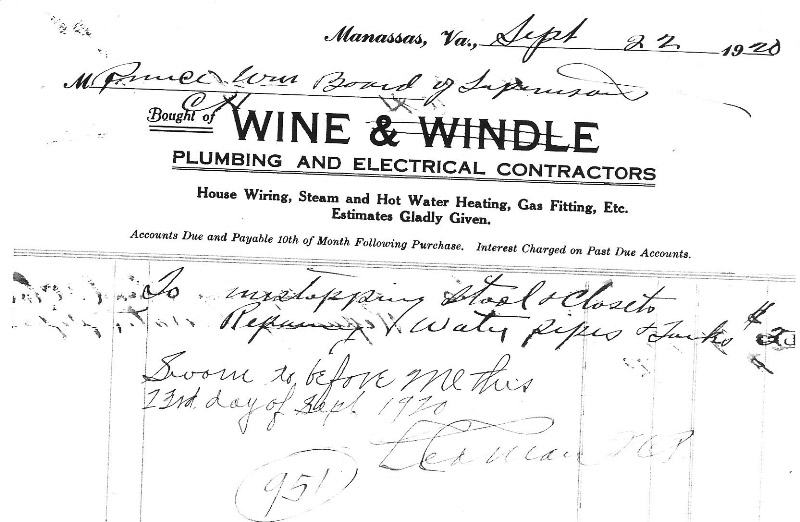 Manassas, Va., Sept 22 1920
M Prince Wm Board of Supervisors
Bought of C H WINE & WINDLE
PLUMBING AND ELECTRICAL CONTRACTORS
House Wiring, Steam and Hot Water Heating, Gas Fitting, Etc.
Estimates Gladly Given.
Accounts Due and Payable 10th of Month Following Purchase. Interest Charged on Past Due Accounts.
To unstopping Stool & Closets
Repairing Water pipes & Tanks $
Sworn to before Me this
23rd day of Sept 1920
951